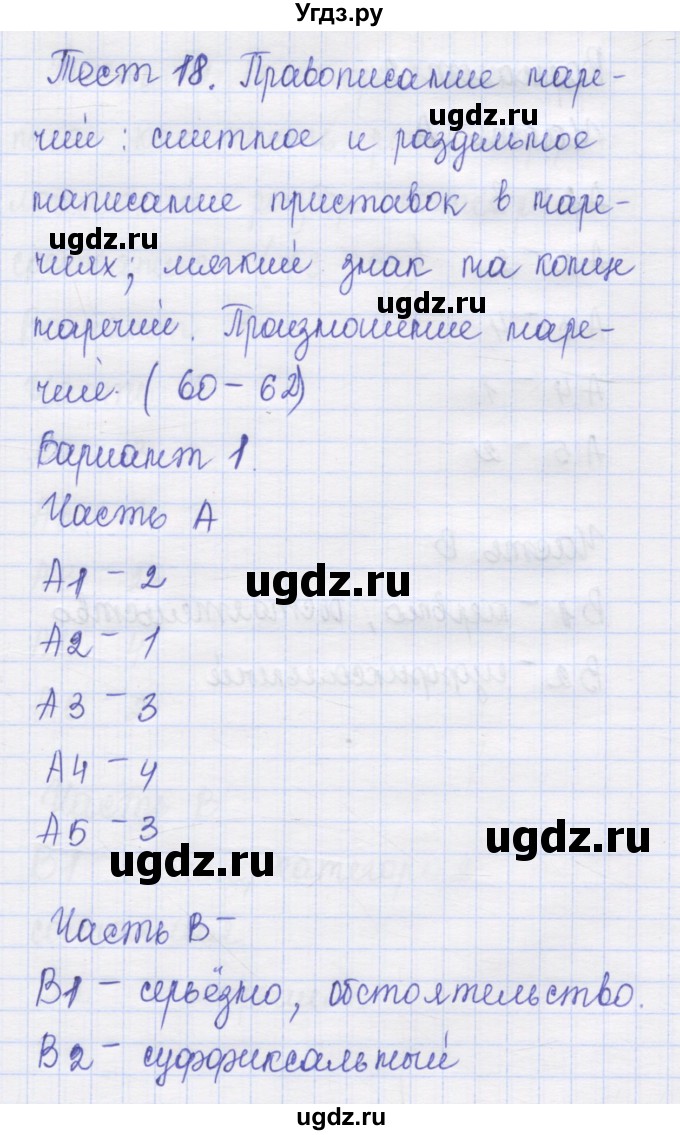 Угдз.ру
Тест 18. Правописание наре-
ugdz.ru
чий: слитное и раздельное
написание приставок в наре-
ugdz.ru
чиях; мягкий знак на конце
ugdz.ru
наречий. Произношение наре-
чий. (60-62)
Вариант 1.
Часть А
А1 - 2
ugdz.ru
А2 - 1
А3 - 3
А4 - 4
А5 - 3
ugdz.ru
ugdz.ru
Часть В-
В1 - серьёзно, обстоятельство.
В2 - суффиксальный
ugdz.ru